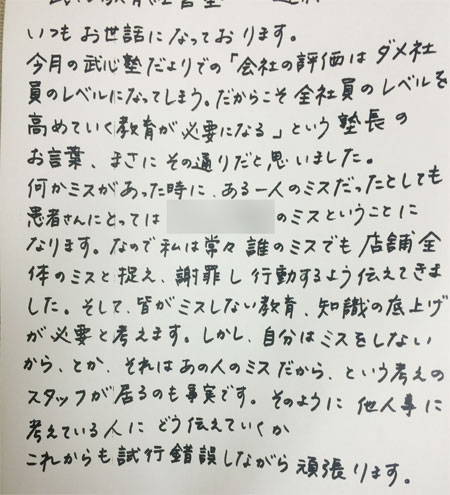 いつもお世話になっております。
今月の武心塾だよりでの「会社の評価はダメ社
員のレベルになってしまう。だからこそ全社員のレベルを
高めていく教育が必要になる」という塾長の
お言葉、まさにその通りだと思いました。
何かミスがあった時に、ある一人のミスだったとしても
患者さんにとっては のミスということに
なります。なので私は常々誰のミスでも店舗全
体のミスと捉え、謝罪し行動するよう伝えてきま
した。そして、皆がミスしない教育、知識の底上げ
が必要と考えます。しかし、自分はミスをしない
から、とか、それはあの人のミスだから、という考えの
スタッフが居るのも事実です。そのように他人事に
考えている人にどう伝えていくか
これからも試行錯誤しながら頑張ります。